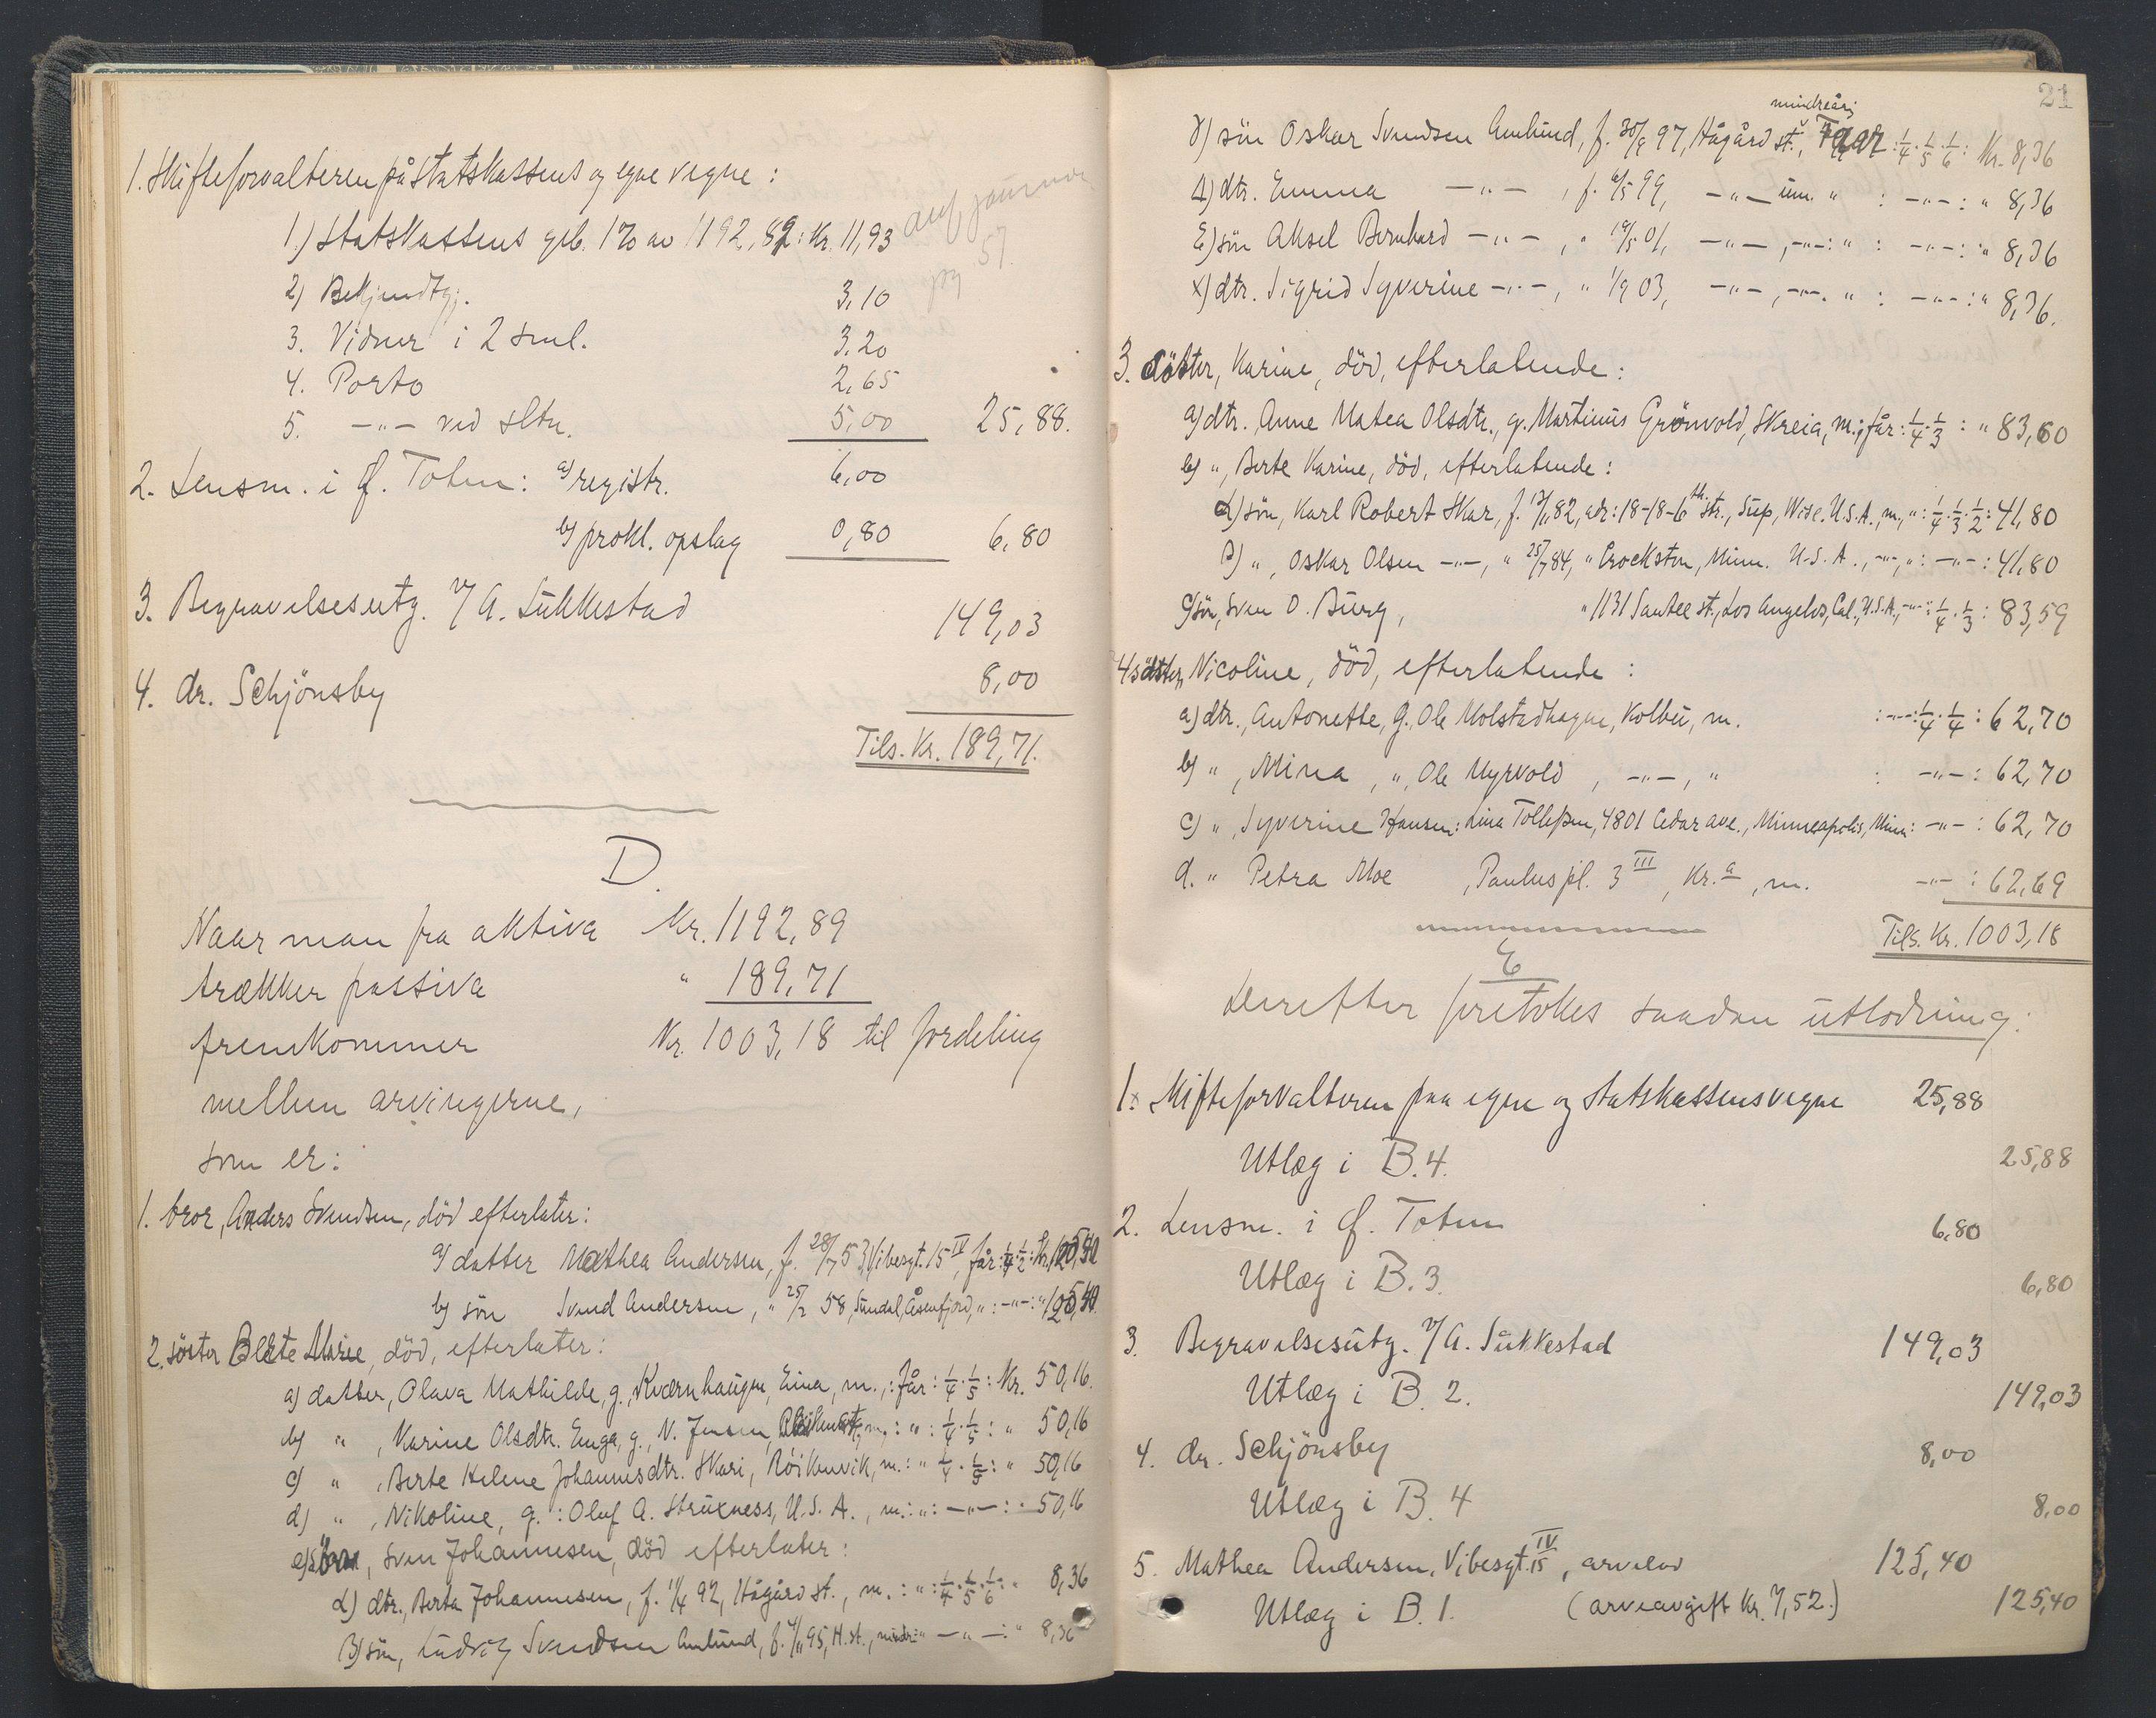 1. Skifteforvalteren på Statskassens og egne vegne:
1.) Statskassens geb. 1% av 1192,89: Kr. 11,93
2) Bekjendtgj. 3,10
3. Vidner i 2 saml. 3,20
4. Porto 2,65
5. -„- ved sltn. 5,00 25,88.
2. Lensm. i Ø. Toten: a) registr. 6,00
b) prokl. opslag 0,80 6,80
3. Begravelsesutg. v/ A. Sukkestad 149,03
4. dr. Schjönsby 8,00
Tils. Kr. 189,71.
D.
Naar man fra aktiva Kr. 1192,89
trækker passiva „ 189,71
fremkommer Kr. 1003,18 til fordeling
mellem arvingerne,
som er:
1. bror, Anders Svendsen, död efterlater:
a) datter Mathea Andersen, f. 28/7 53, Vibesgt. 15 IV, får: 1/4·1/2: Kr. 125,40
b) sön Svend Andersen, „ 25/2 58, Sundal, Åsenfjord, „: -„-: „ 125,40.
2. söster Berte Marie, död, efterlater:
a) datter, Olava Mathilde, g. Kværnhaugen, Eina, m.,: får: 1/4·1/5: Kr. 50,16.
b) „ , Karine Olsdtr. Enga, g. N. Jensen, m,: „: 1/4·1/5: „ 50,16
c) „ , Berte Helene Johannesdtr. Skari, Röikenvik, m.: „ 1/4·1/5: „ 50,16
d) „ , Nikoline, g.: Oluf A. Struxness, U.S.A., m.: „: -„-: „ 50,16
e) sön, Sven Johannesen, död efterlater:
α) dtr., Berta Johannesen, f. 11/4 92, Hågår st., m.: „: 1/4·1/5·1/6: „ 8,36
β) sön, Ludvig Svendsen Amlund, f. 4/11 95, H. st., mindr: „ -„-: „ 8,36
21
mindreårig
γ) sön Oskar Svendsen Amlund, f. 30/8 97, Hågård st., får: 1/4·1/5·1/6: Kr. 8,36
Δ) dtr. Emma -„-, f. 6/5 99, -„- um. „ : -„-: „ 8,36
Ɛ) sön Aksel Bernhard -„-, „ 19/5 01, -„-, -„-: „ : -„-: „ 8,36
x) dtr. Sigrid Syverine -„-, „ 1/9 03, -„-, -„-. „ : -„-: „ 8,36.
3. söster, Karine, död, efterlatende:
a) dtr., Anne Matea Olsdtr., g. Martinus Grönvold, Skreia, m.; får: 1/4·1/3: „ 83,60
b) „, Berte Karine, död, efterlatende:
α) sön, Karl Robert Skar, f. 13/11 82, adr: 18-18-6th str., Sup, Wisc. U.S.A., m., „: 1/4·1/3·1/2: 41,80
β) „, Oskar Olsen -„-, „ 25/7 84, „ Crockston, Minn. U.S.A., -„-, „: -„-: 41,80
c) sön, Sven O. Burg, „ 1131 Santee st., Los Angelos, Cal., U.S.A., -„-: 1/4·1/3: 83,59
4. söster, Nicoline, död, efterlatende:
a) dtr., Antonette, g. Ole Molstadhagen, Kolbu, m. : -„-: 1/4·1/4: 62,70
b) „, Mina, „, Ole Myrvold, -„-, „ : -„-: 62,70
c) „, Syverine Hansen: Lina Tollefsen, 4801 Cedar ave., Minneapolis, Minn: -„-: 62,70
d. „ Petra Moe, Paulus pl. 3 III, Kr.a, m. -„-: 62,69
Tils. Kr. 1003,18
E
Derefter foretokes saadan utlodning:
1. Skifteforvalteren paa egne og statskassens vegne 25,88
Utlæg i B.4. 25,88
2. Lensm. i Ø. Toten 6,80
Utlæg i B.3. 6,80
3. Begravelsesutg. v/ A. Sukkestad 149,03
Utlæg i B.2. 149,03
4. dr. Schjönsby 8,00
Utlæg i B.4 8,00
5. Mathea Andersen, Vibesgt. 15 IV, arvelod 125,40
Utlæg i B.1. (arveavgift Kr. 7,52.) 125,40